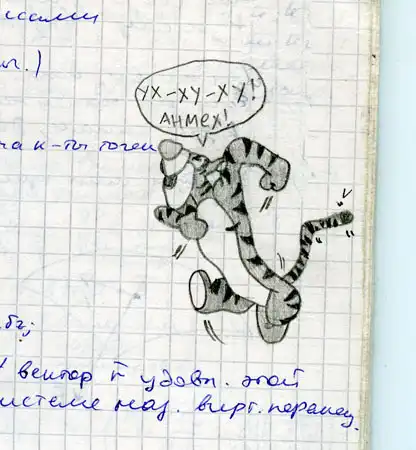 исами
УХ-ХУ-ХУ!
АНМЕХ!
на к-ты точек
вектор r̄ удовл. этой
системе наз. вирт. перемещ.